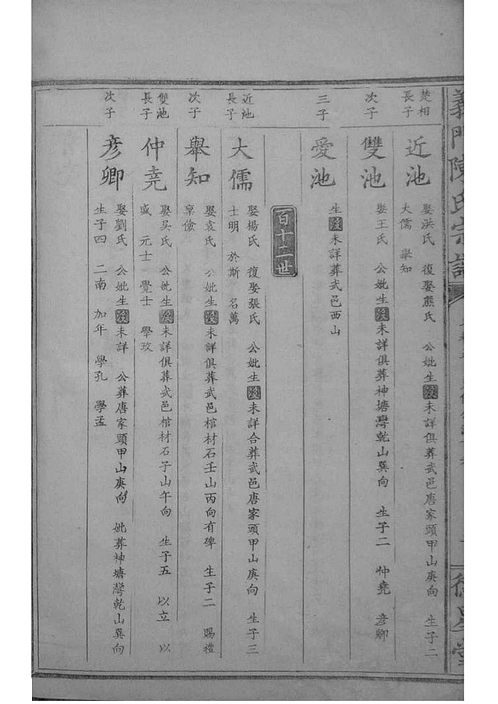 義門陳氏宗譜
楚相
長子
近池
娶洪氏 復娶熊氏 公妣生歿未詳俱葬武邑唐家頭甲山庚向 生子二
大儒 舉知
次子
雙池
娶王氏 公妣生歿未詳俱葬神塘灣乾山巽向 生子二 仲堯 彥卿
三子
愛池
生歿未詳葬武邑西山
百十二世
近池
長子
大儒
娶楊氏 復娶張氏 公妣生歿未詳合葬武邑唐家頭甲山庚向 生子三
士明 於斯 名萬
次子
舉知
娶袁氏 公妣生歿未詳俱葬武邑棺材石壬山丙向有碑 生子二 賜禮
稟儉
雙池
長子
仲堯
娶吳氏 公妣生歿未詳俱葬武邑棺材石子山午向 生子五 以立 以
盛 元士 覺士 學玫
次子
彥卿
娶劉氏 公妣生歿未詳 公葬唐家頭甲山庚向 妣葬神塘灣乾山巽向
生子四 二南 加年 學孔 學孟